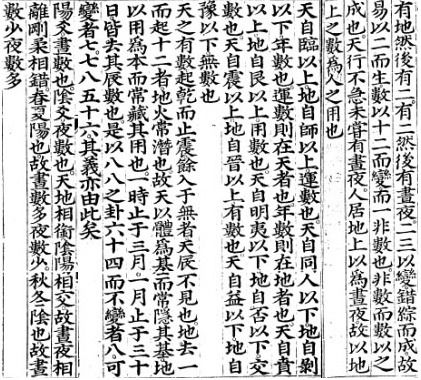 有地然後有二有二然後有晝夜二三以變錯綜而成故
易以二而生數以十二而變而一非數也非數而數以之
成也天行不急未嘗有晝夜人居地上以為晝夜故以地
上之數為人之用也
天自臨以上地自師以上運數也天自同人以下地自剝
以下年數也運數則在天者也年數則在地者也天自賁
以上地自艮以上用數也天自明夷以下地自否以下交
數也天自震以上地自晉以上有數也天自益以下地自
豫以下無數也
天之有數起乾而止震餘入于無者天辰不見也地去一
而起十二者地火常潛也故天以體為基而常隱其基地
以用為本而常藏其用也一時止于三月一月止于三十
日皆去其辰數也是以八八之卦六十四而不變者八可
變者七七八五十六其義亦由此矣
陽爻晝數也陰爻夜數也天地相銜陰陽相交故晝夜相
離剛柔相錯春夏陽也故晝數多夜數少秋冬陰也故晝
數少夜數多